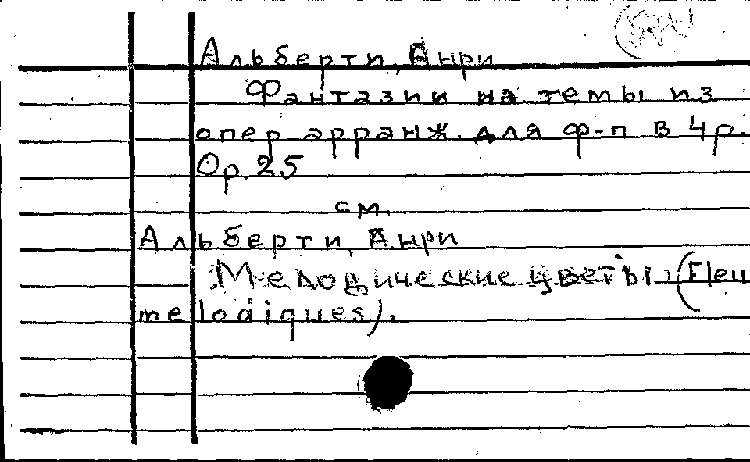 Альберти, Анри
Фантазии на темы из
опер арранж. для ф-п в 4 р.
Op. 25
см.
Альберти, Анри
Мелодические цветы (Fleu
melodiques).